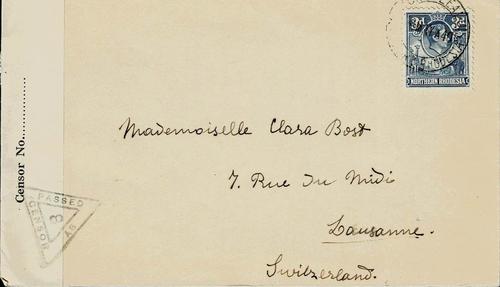 3d 3d
NORTHERN RHODESIA
Mademoiselle Clara Bost
7. Rue Du Midi
Lausanne.
Switzerland.
Censor No.....................
PASSED
CENSOR
B
A6